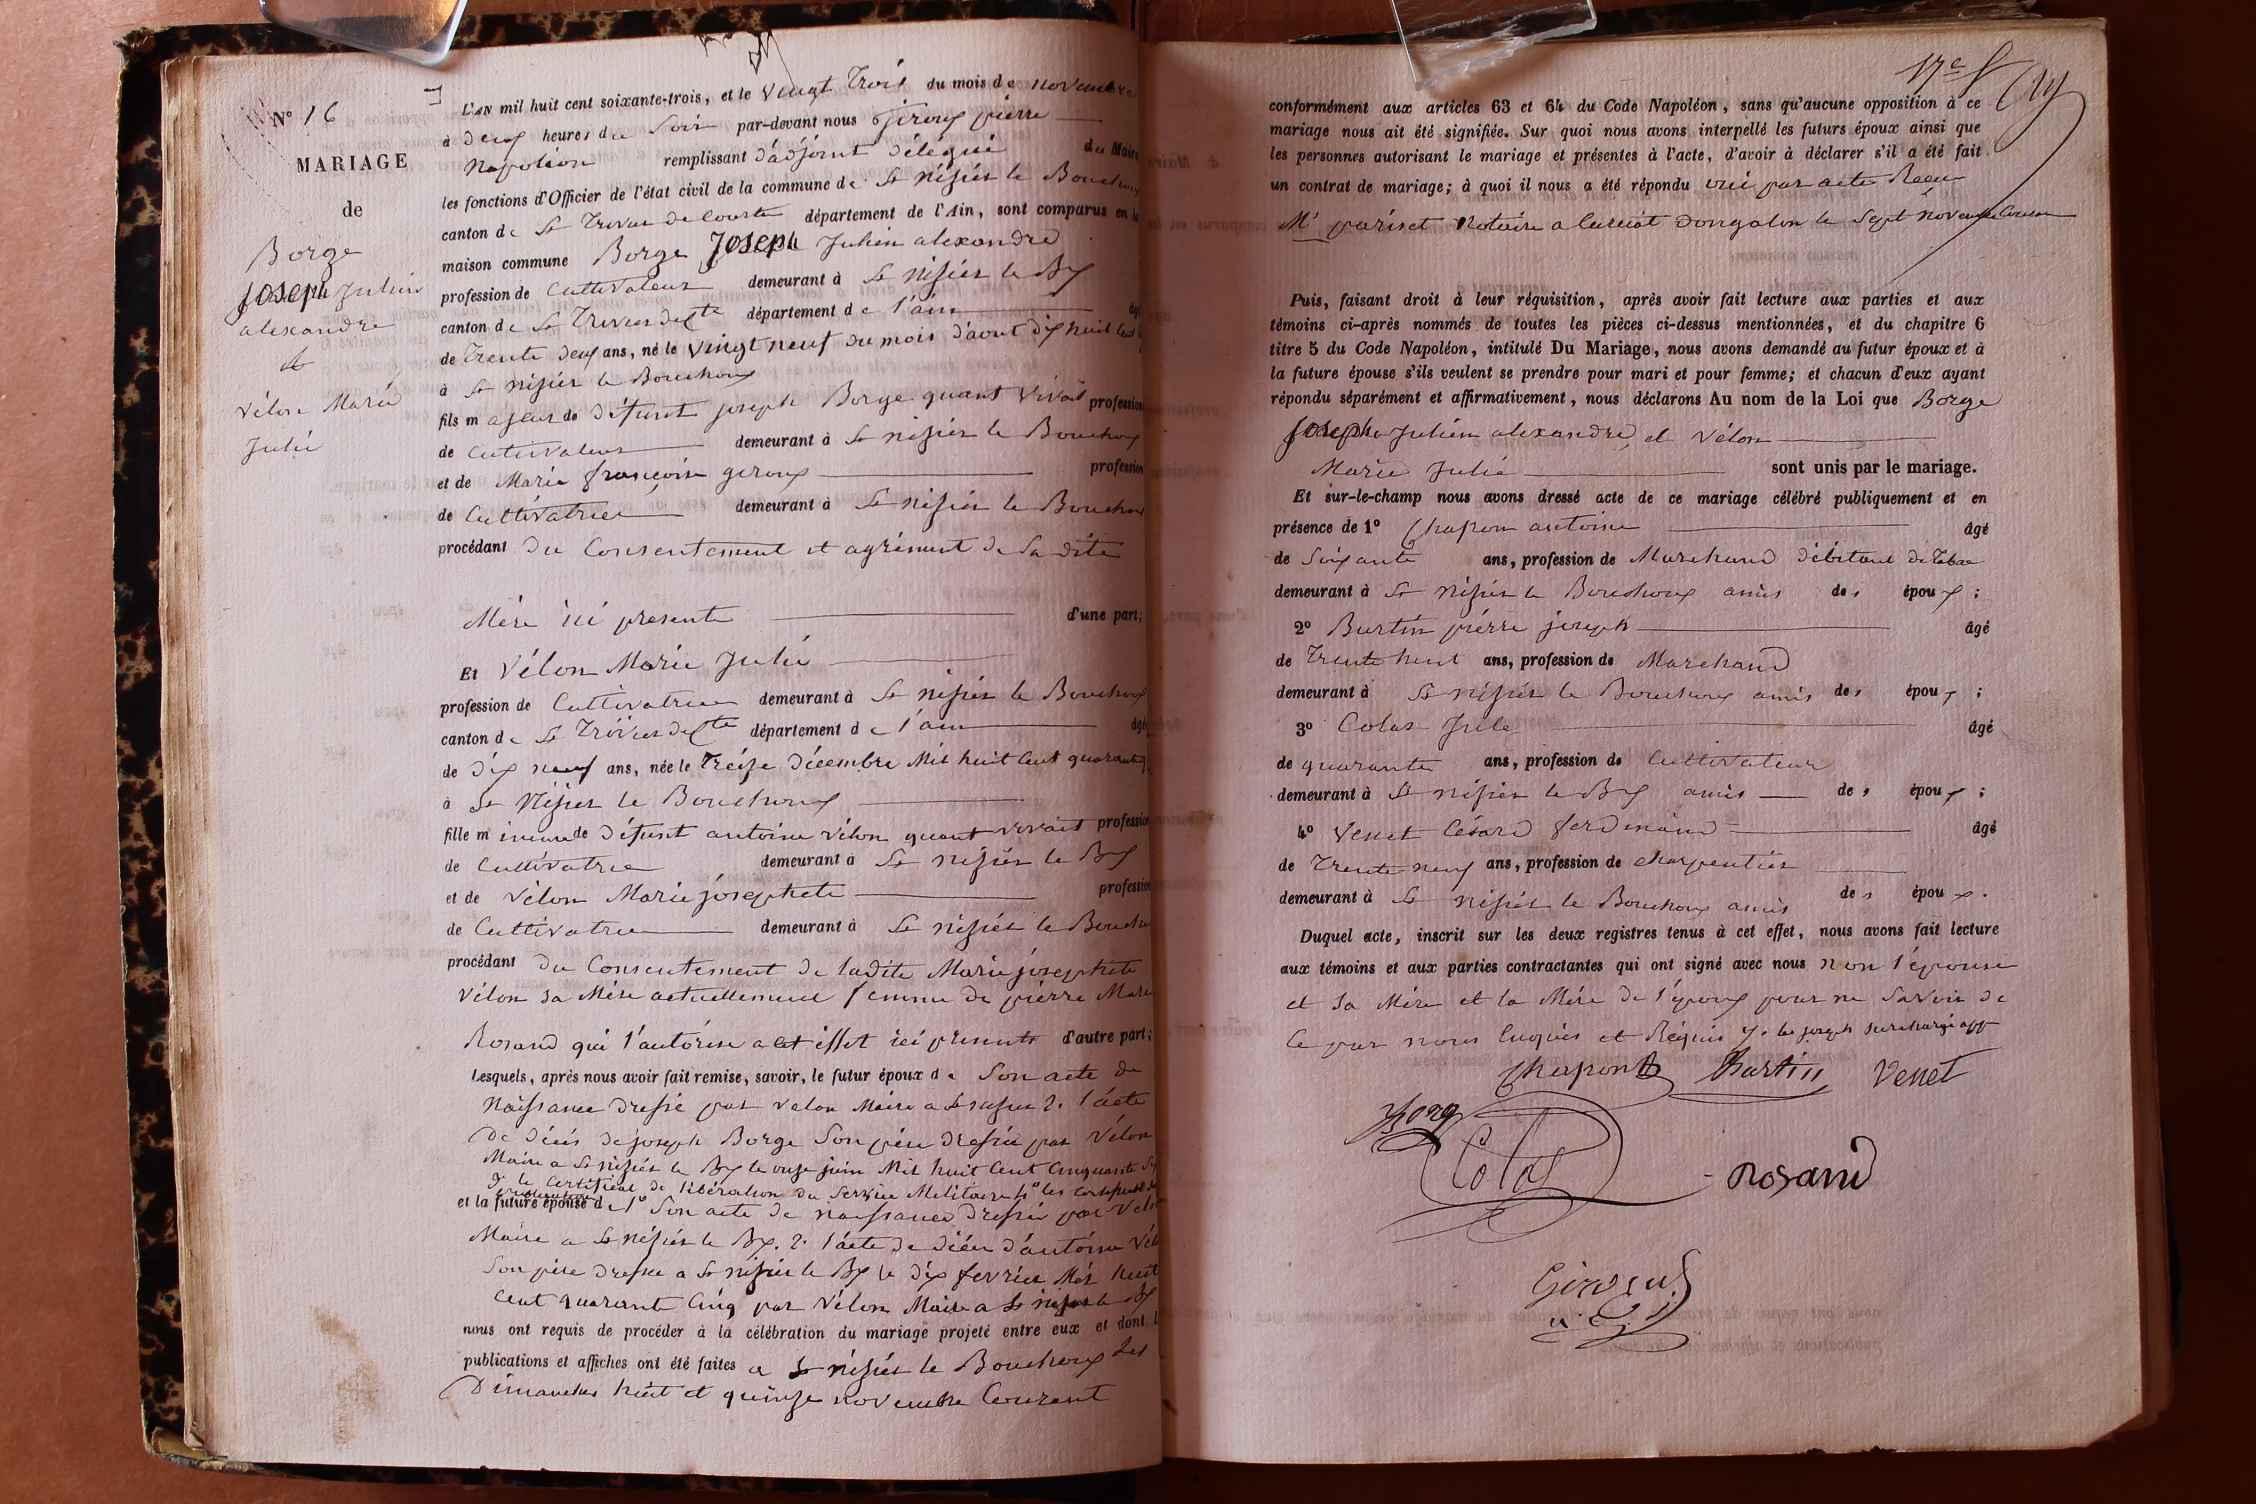 N° 16
MARIAGE
de
Borge
Joseph Julien
alexandre
&
Vélon Marie
Julie
L'AN mil huit cent soixante-trois, et le vingt Trois du mois de novembre
à deux heures du Soir par-devant nous Giroux pierre
Napoléon remplissant d'adjoint délégué du Maire
les fonctions d'Officier de l'état civil de la commune de St nisier le Bouchoux
canton de St Trivier de Courte département de l'Ain, sont comparus en la
maison commune Borge Joseph Julien alexandre
profession de Cultivateur demeurant à St nisier le Bx
canton de St Trivier de Cte département de l'ain âgé
de Trente deux ans, né le vingt neuf du mois d'aout dix huit cent
à St nisier le Bouchoux
fils majeur de défunt joseph Borge quant vivait profession
de Cultivateur demeurant à St nisier le Bouchoux
et de Marie françoise giroux profession
de Cultivatrice demeurant à St nisier le Bouchoux
procédant du Consentement et agrément de Sa dite
Mère ici presente d'une part;
Et Vélon Marie Julie
profession de Cultivatrice demeurant à St nisier le Bouchoux
canton de St Trivier de Cte département de l'ain âgé
de dix neuf ans, née le treize décembre Mil huit Cent quarante
à St Nisier le Bouchoux
fille mineure de défunt antoine Vélon quant vivait profession
de Cultivatrice demeurant à St nisier le Bx
et de Vélon Marie josephete profession
de Cultivatrice demeurant à St nisier le Bouchoux
procédant du Consentement de ladite Marie josephete
Vélon sa Mère actuellement femme de pierre Marie
Rosand qui l'autorise a cet effet ici presents d'autre part;
Lesquels, après nous avoir fait remise, savoir, le futur époux de Son acte de
Naissance dressé par Velon Maire a St nisier 2° l'acte
de décés de joseph Borge Son père dressée par Vélon
Maire a St nisier le Bx le onze juin Mil huit Cent Cinquante
3° le Certificat de libération du Service Militaire 4° les
et la future épouse de 1° Son acte de naissance dressée par Velon
Maire a St nisier le Bx. 2° l'acte de décés d'antoine Vélon
Son père dressée a St nisier le Bx le dix fevrier Mil huit
Cent quarante Cinq par Vélon Maire a St nisier le Bx
nous ont requis de procéder à la célébration du mariage projeté entre eux et dont
publications et affiches ont été faites a St nisier le Bouchoux Les
Dimanches huit et quinze novembre Courant
17e f
conformément aux articles 63 et 64 du Code Napoléon, sans qu'aucune opposition à ce
mariage nous ait été signifiée. Sur quoi nous avons interpellé les futurs époux ainsi que
les personnes autorisant le mariage et présentes à l'acte, d'avoir à déclarer s'il a été fait
un contrat de mariage; à quoi il nous a été répondu oui par acte Reçu
Me pariset Notaire a Curciat Dongalon le Sept novembre Courant
Puis, faisant droit à leur réquisition, après avoir fait lecture aux parties et aux
témoins ci-après nommés de toutes les pièces ci-dessus mentionnées, et du chapitre 6
titre 5 du Code Napoléon, intitulé Du Mariage, nous avons demandé au futur époux et à
la future épouse s'ils veulent se prendre pour mari et pour femme; et chacun d'eux ayant
répondu séparément et affirmativement, nous déclarons Au nom de la Loi que Borge
Joseph Julien alexandre et Vélon
Marie Julie sont unis par le mariage.
Et sur-le-champ nous avons dressé acte de ce mariage célébré publiquement et en
présence de 1° Chapon antoine âgé
de Soixante ans, profession de Marchand débitant de Tabac
demeurant à St nisier le Bouchoux amis des époux;
2° Burtin pierre joseph âgé
de Trente huit ans, profession de Marchand
demeurant à St nisier le Bouchoux amis des époux;
3° Colas Jule âgé
de quarante ans, profession de Cultivateur
demeurant à St nisier le Bx amis des époux;
4° Venet César ferdinand âgé
de Trente neuf ans, profession de charpentier
demeurant à St nisier le Bouchoux amis des époux.
Duquel acte, inscrit sur les deux registres tenus à cet effet, nous avons fait lecture
aux témoins et aux parties contractantes qui ont signé avec nous non l'épouse
et Sa Mère et la Mère de l'époux pour ne Savoir de
Ce par nous Enquis et Réquis les joseph surchargé app
Chapon Burtin Venet
Borge
Colas
Rosand
Giroux